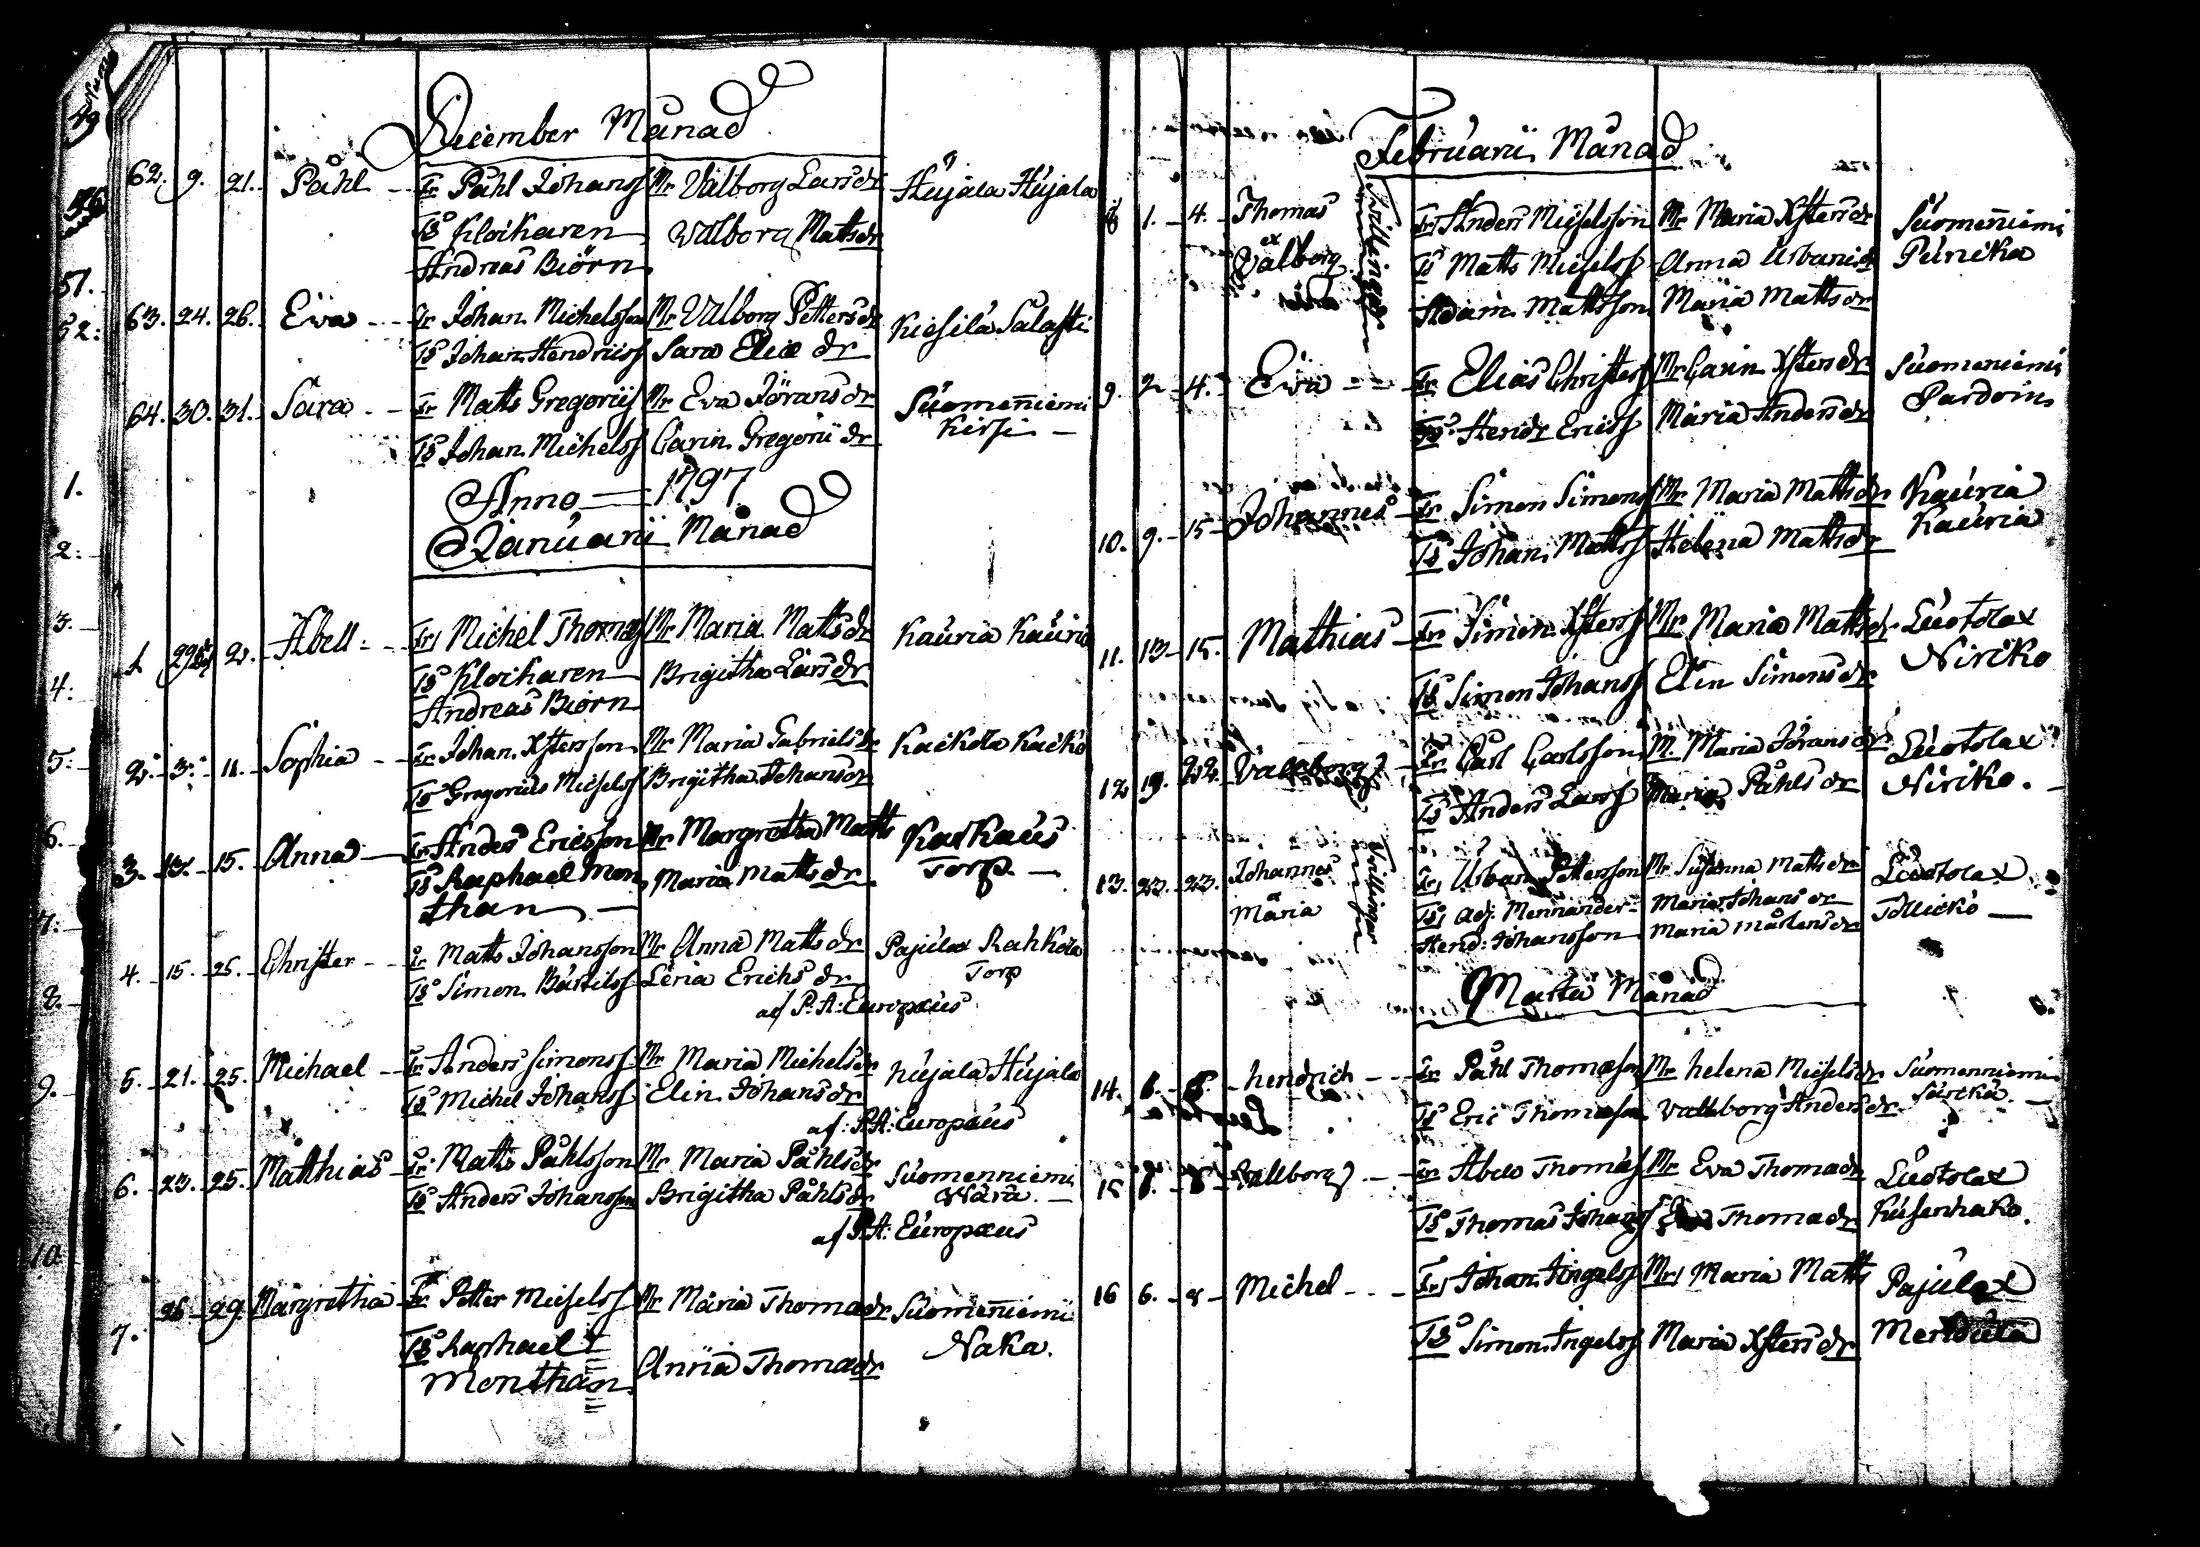 December Månad
62. 9. 21. Påhl Fr Påhl Johanss Mr Valborg Larsdr Hujala Hujala
TS Klockaren Valborg Mattsdr
Andreas Biörn
63. 24. 26. Eva Fr Johan Michelsson Mr Valborg Pettersdr Kiesilä Salasti
TS Johan Hendricss Sara Eliæ dr
64. 30. 31. Sara Fr Matts Gregoriiss Mr Eva Jöransdr Suomenniemi
TS Johan Michelss Carin Gregorii dr Kirsi
Anno 1797
Januarii Månad
1 29 2. Abell Fr Michel Thomæss Mr Maria Mattsdr Kauria Kauria
TS Klockaren Brigitha Larsdr
Andreas Biörn
2. 3. 11. Sophia Fr Johan Xstersson Mr Maria Gabrielsdr
TS Gregorius Michelss Brigitha Johansdr
3. 13. 15. Anna Fr Anders Ericsson Mr Margretha Matts
TS Raphael Mon Maria Mattsdr Torp
than
4. 15. 25. Christer Fr Matts Johansson Mr Anna Mattsdr Pajulax Rahkola
TS Simon Bärtilss Lena Erichs dr Torp
af P. A: Europæus
5. 21. 25. Michael Fr Anders Simonss Mr Maria Michelsdr Hujala Hujala
TS Michel Johanss Elin Johansdr
af: P. A: Europæus
6. 23. 25. Matthias Fr Matts Påhlsson Mr Maria Påhlsdr Suomenniemi
TS Anders Johansson Brigitha Påhlsdr Wära
af P. A: Europæus
7. 26 29. Margretha Fr Petter Michelss Mr Maria Thomædr Suomenniemi
TS Raphael Anna Thomædr Naka.
Monthan
Februarii Månad
8 1. 4. Thomas Tvillingar Fr Anders Michelsson Mr Maria Xstersdr Suomenniemi
Valborg TS Matts Michelss Anna Urbanidr
Adam Mattsson Maria Mattsdr
9. 2 4. Eva Fr Elias Christerss Mr Carin Xstersdr Suomeniemi
TS Hendr Ericss Maria Andersdr Pardoin
10. 9. 15 Johannes Fr Simon Simonss Mr Maria Mattsdr Kauria
TS Johan Mattss Helena Mattsdr Kauria
11. 13 15. Mathias Fr Simon Xsterss Mr Maria Mattsdr Luotolax
TS Simon Johanss Elin Simonsdr Niriko
12 19. 22. Vallborg Fr Carl Carlsson M. Maria Jöransdr Luotolax
TS Anders Larss Maria Påhlsdr Niriko.
13. 23. 23. Johannes Tvillingar Fr Urban Pettersson Mr Susanna Mattsdr Luotolax
Maria TS Adj. Mennander Maria Johans dr Tollicko
Hend: Johansson Maria Mårtensdr
Martii Månad
14. 6. 8. hendrich Fr Påhl Thomæson Mr helena Michelsdr Suomenniemi
TS Eric Thomæson Vallborg Andersdr
15 8. 8 Vallborg Fr Abel Thomæss Mr Eva Thomædr Luotolax
TS Thomas Johanss Thomædr Kusenhako.
16 6. 8 Michel Fr Johan Ingelss Mr Maria Matts Pajulax
TS Simon Ingelss Maria Xstersdr